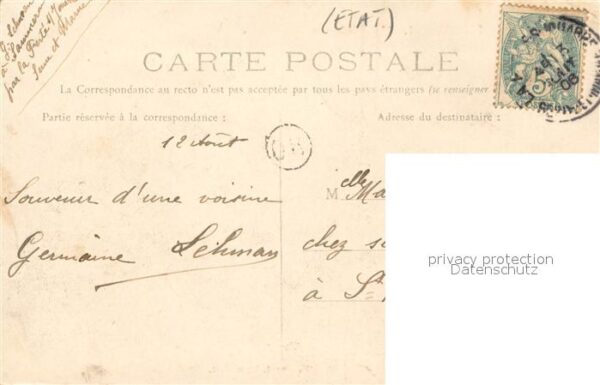 (ETAT.)
à Saunier
par la Ferté s/ Jouarre
Seine et Marne
CARTE POSTALE
La Correspondance au recto n'est pas acceptée par tous les pays étrangers (se renseigner
Partie réservée à la correspondance :
Adresse du destinataire :
12 Août
Souvenir d'une voisine
Germaine Lehman
M elle Ma
chez
à St
privacy protection
Datenschutz